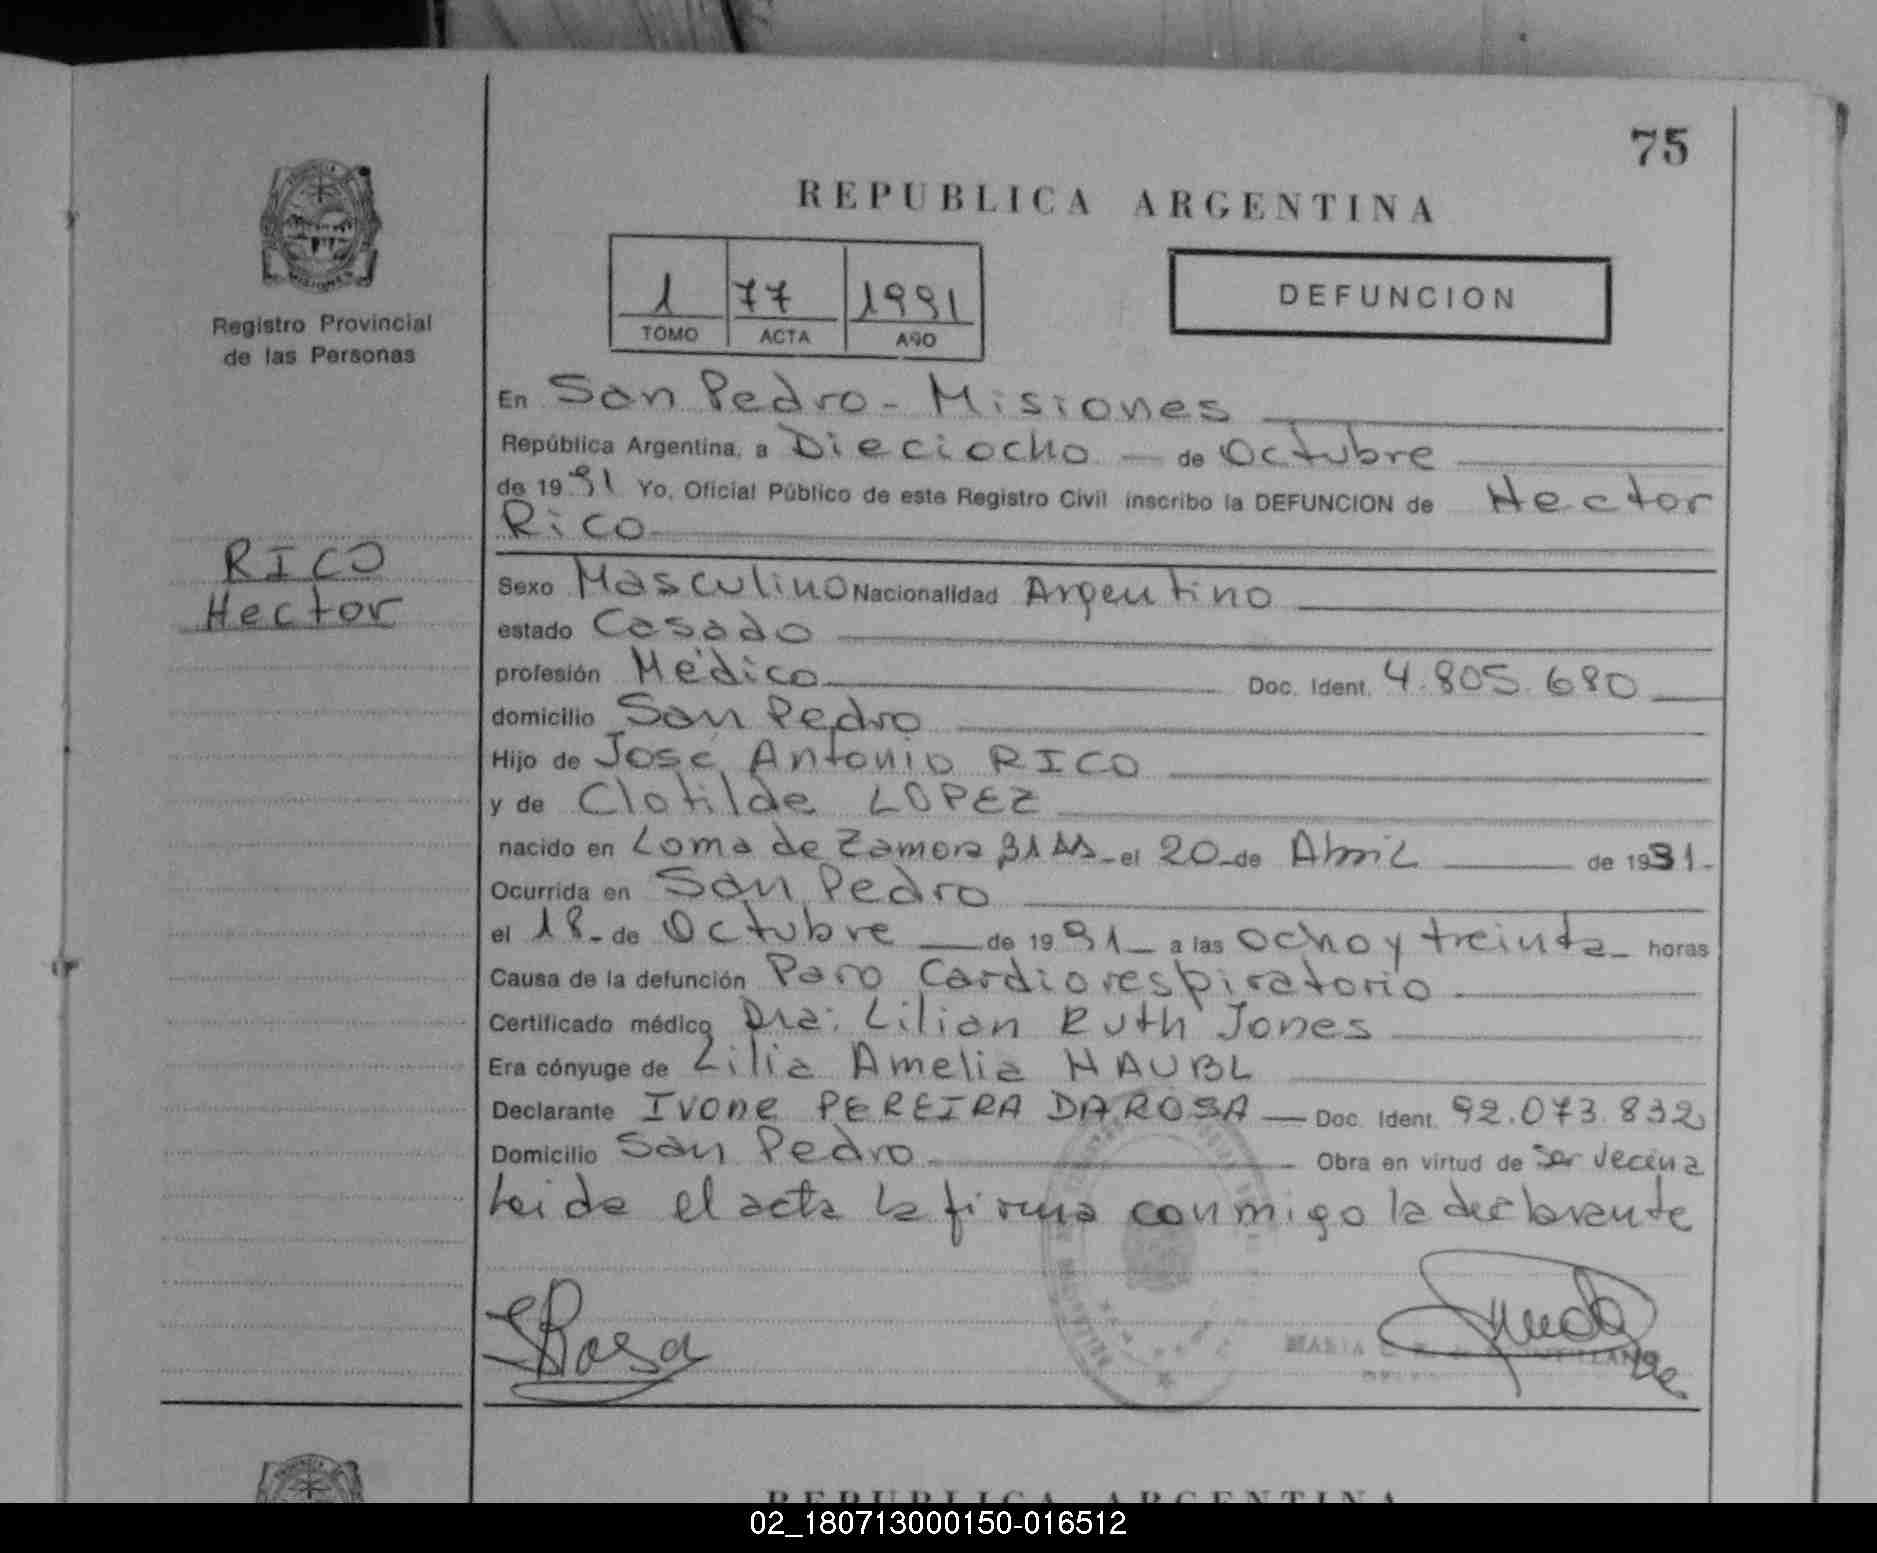 75
REPUBLICA ARGENTINA
Registro Provincial
de las Personas
1 77 1991
TOMO ACTA AÑO
DEFUNCION
RICO
Hector
En San Pedro - Misiones
República Argentina, a Dieciocho — de Octubre
de 1991 Yo, Oficial Público de este Registro Civil inscribo la DEFUNCION de Hector
Rico
Sexo Masculino Nacionalidad Argentino
estado Casado
profesión Médico Doc. Ident. 4.805.680
domicilio San Pedro
Hijo de José Antonio RICO
y de Clotilde LOPEZ
nacido en Loma de Zamora Bs As - el 20 - de Abril de 1931 -
Ocurrida en San Pedro
el 18 - de Octubre — de 1991 - a las ocho y treinta - horas
Causa de la defunción Paro Cardiorespiratorio
Certificado médico Dra: Lilian Ruth Jones
Era cónyuge de Lilia Amelia HAUBL
Declarante Ivone PEREIRA DA ROSA — Doc. Ident. 92.073.832
Domicilio San Pedro Obra en virtud de ser vecina
Leida el acta la firma conmigo la declarante
Rosa
MARIA
REPUBLICA ARGENTINA
02_180713000150-016512